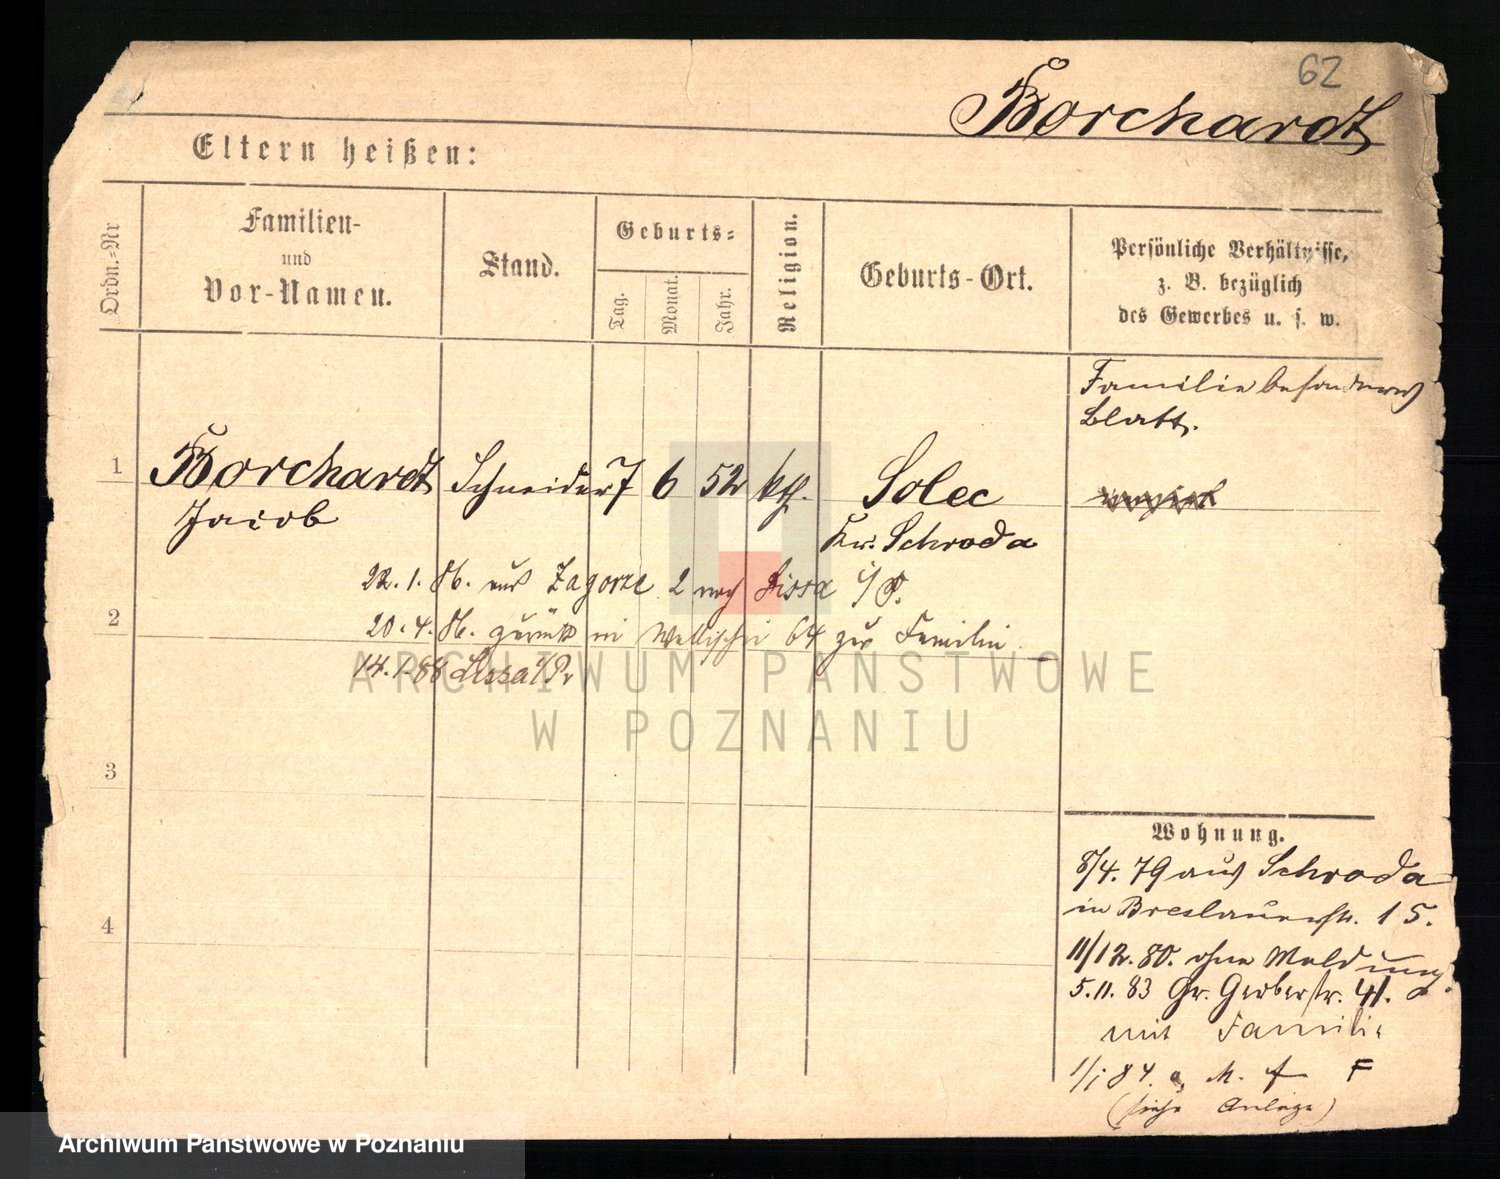 62
Borchardt
Eltern heißen:
Ordn.=Nr.
Familien-
und
Vor-Namen.
Stand.
Geburts=
Tag.
Monat.
Jahr.
Religion.
Geburts-Ort.
Persönliche Verhältnisse,
z. B. bezüglich
des Gewerbes u. s. w.
Familie besonderes
Blatt.
1
Borchardt Schneider 7 6 52 kth. Solec
Jacob Kr. Schroda
22.1.86. aus Zagorze 2 nach Lissa i/P.
2
20.4.86. zurück in Wallischei 64 zur Familie
14.1.88 Lissa i/P.
ARCHIWUM PAŃSTWOWE
W POZNANIU
3
4
Wohnung.
8/4. 79 aus Schroda
in Breslauerstr. 15.
11/12. 80. ohne Meldung.
5.11. 83 Gr. Gerberstr. 41.
mit Familie
1/1 84. a. M. f F
(siehe Anlage)
Archiwum Państwowe w Poznaniu